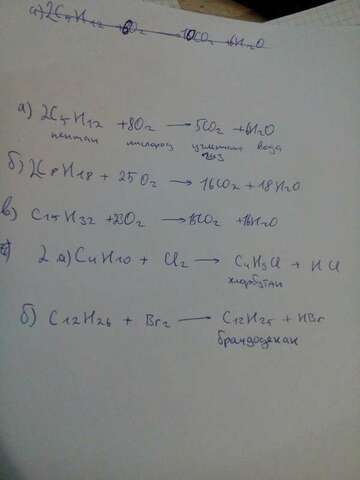 а) 2C5H12 + 6O2 10CO2 + 6H2O
а) 2C5H12 + 8O2 → 5CO2 + 6H2O
пентан кислород углекислый газ вода
б) 2C8H18 + 25O2 → 16CO2 + 18H2O
в) C15H32 + 23O2 → 15CO2 + 16H2O
2 а) C4H10 + Cl2 → C4H9Cl + HCl
хлорбутан
б) C12H26 + Br2 → C12H25 + HBr
бромдодекан